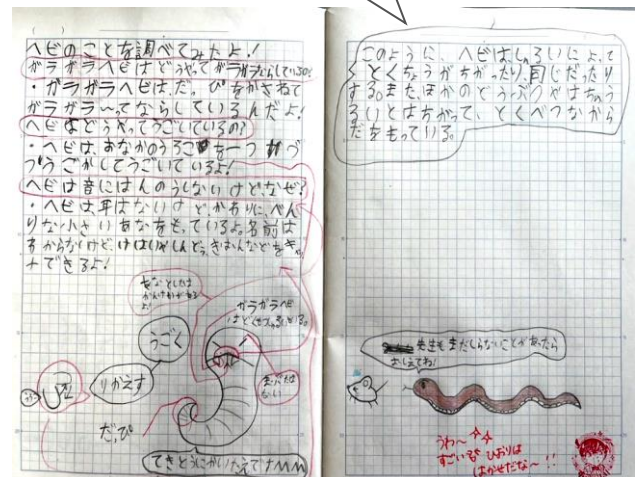 ヘビのことを調べてみたよ!
ガラガラヘビはどうやってガラガラならしているの?
・ガラガラヘビは、だっぴをかさねて
ガラガラ〜ってならしているんだよ!
ヘビはどうやってうごいているの?
・ヘビは、おなかのうろこを一つずつ
うごかしてうごいているよ!
ヘビは音にはんのうしないけど、なぜ?
・ヘビは、耳はないけど、かわりに、べん
りな小さいあなをもっているよ。名前は
わからないけど、けはいやしんどう、きおんなどをキャッ
チできるよ!
ガラガラヘビ
はどく
まぶたは
ない
うごく
りかえす
だっぴ
てきとうにかいたえです
このように、ヘビは、しゅるいによって
とくちょうがちがったり、同じだったり
する。また、ほかのどうぶつやはちゅう
るいとはちがって、とくべつなから
だをもっている。
先生もまだしらないことがあったら
おしえてね!
うわ〜
すごいぞ ひおりは
はかせだな〜!!